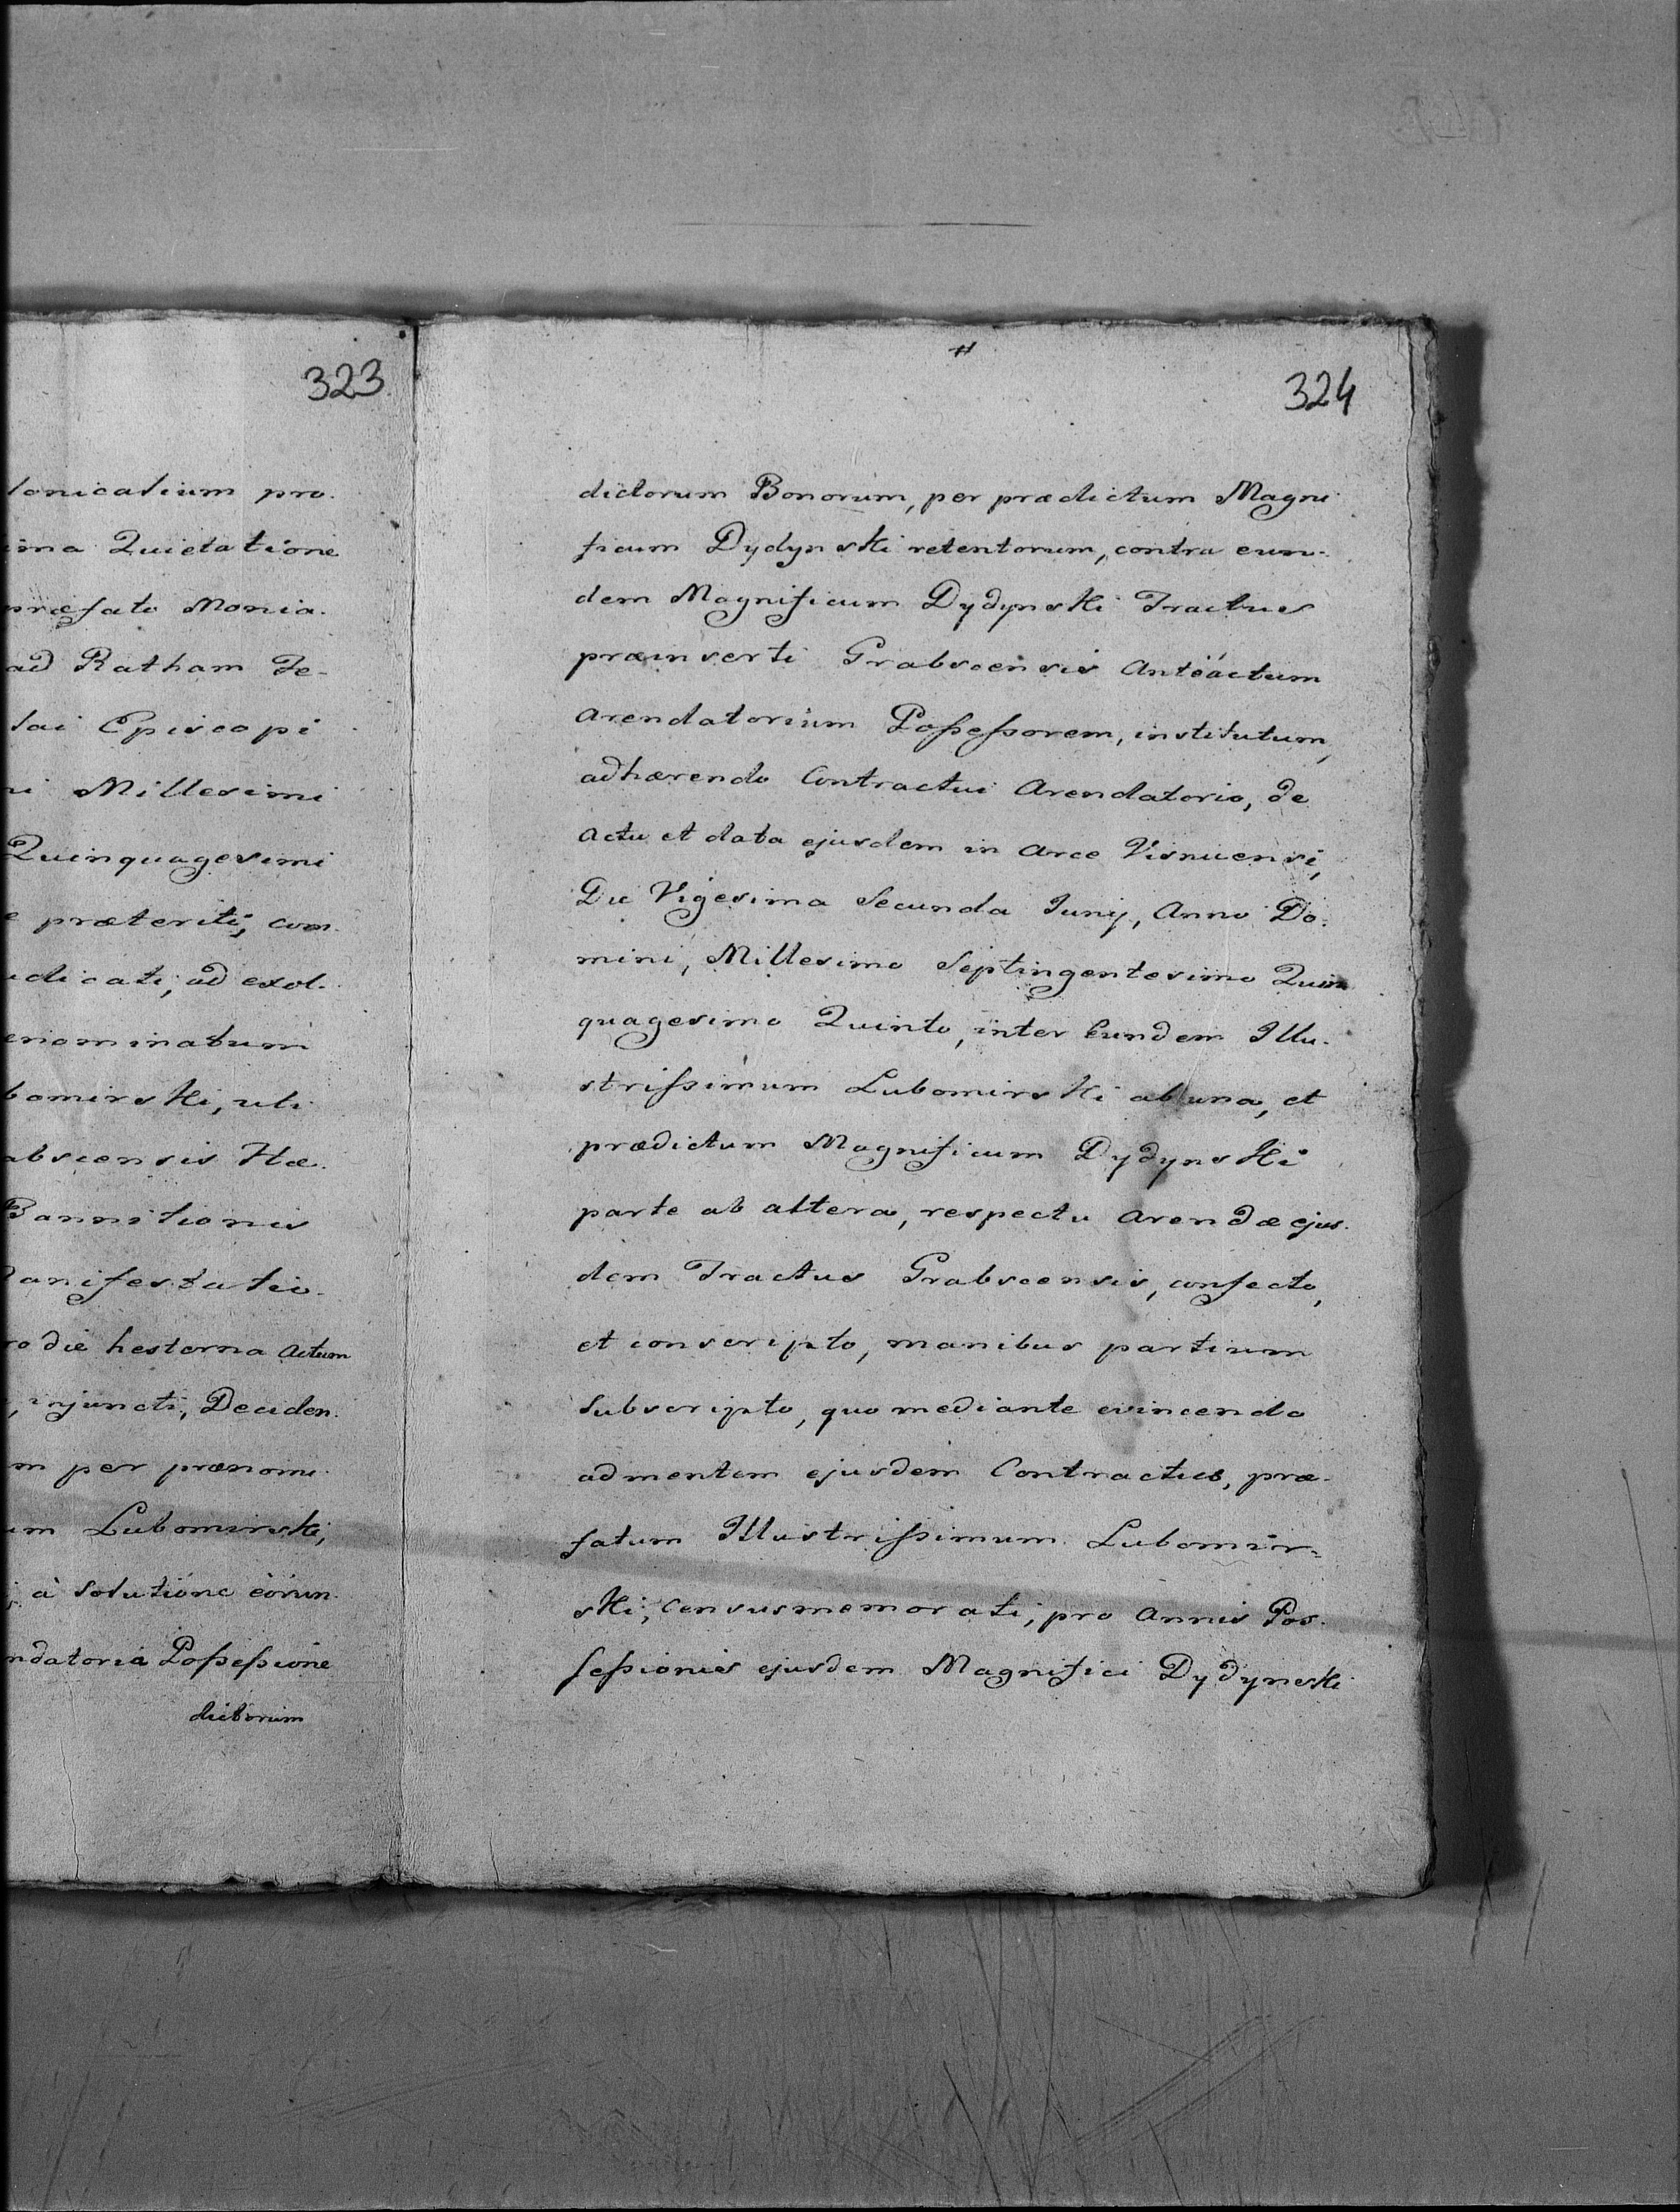 323
lonicalium pro.
ima Quietatione
præfato Monia.
ad Ratham Fe-
lai Episcopi
ni Millesimi
Quinquagesimi
e præteriti, com.
udicati, ad exol.
enominatum
bomirski, uti
abscensis Hæ.
Bannitionis
Manifestatio.
ro die hesterna actum
, injuncti, Deciden.
m per prænomi.
um Lubomirski,
à solutione eorun.
ndatoria Possessione
dictorum
324
dictorum Bonorum, per prædictum Magni
ficum Dydynski retentorum, contra eun-
dem Magnificum Dydynski Tractus
præinserti Grabscensis Anteáctum
arendatorium Possessorem, institutum,
adhærendo Contractui Arendatorio, de
actu et data ejusdem in Arce Visnicensi,
Die Vigesima Secunda Junij, Anno Do.
mini, Millesimo Septingentesimo Quin
quagesimo Quinto, inter Eundem Illu.
strissimum Lubomirski ab una, et
prædictum Magnificum Dydynski
parte ab altera, respectu Arendæ ejus.
dem Tractus Grabscensis, confecto,
et conscripto, manibus partium
Subscripto, quo mediante evincendo
ad mentem ejusdem Contractus, præ.
fatum Illustrissimum Lubomir-
ski, Census memorati, pro Annis Pos.
sessionis ejusdem Magnifici Dydynski